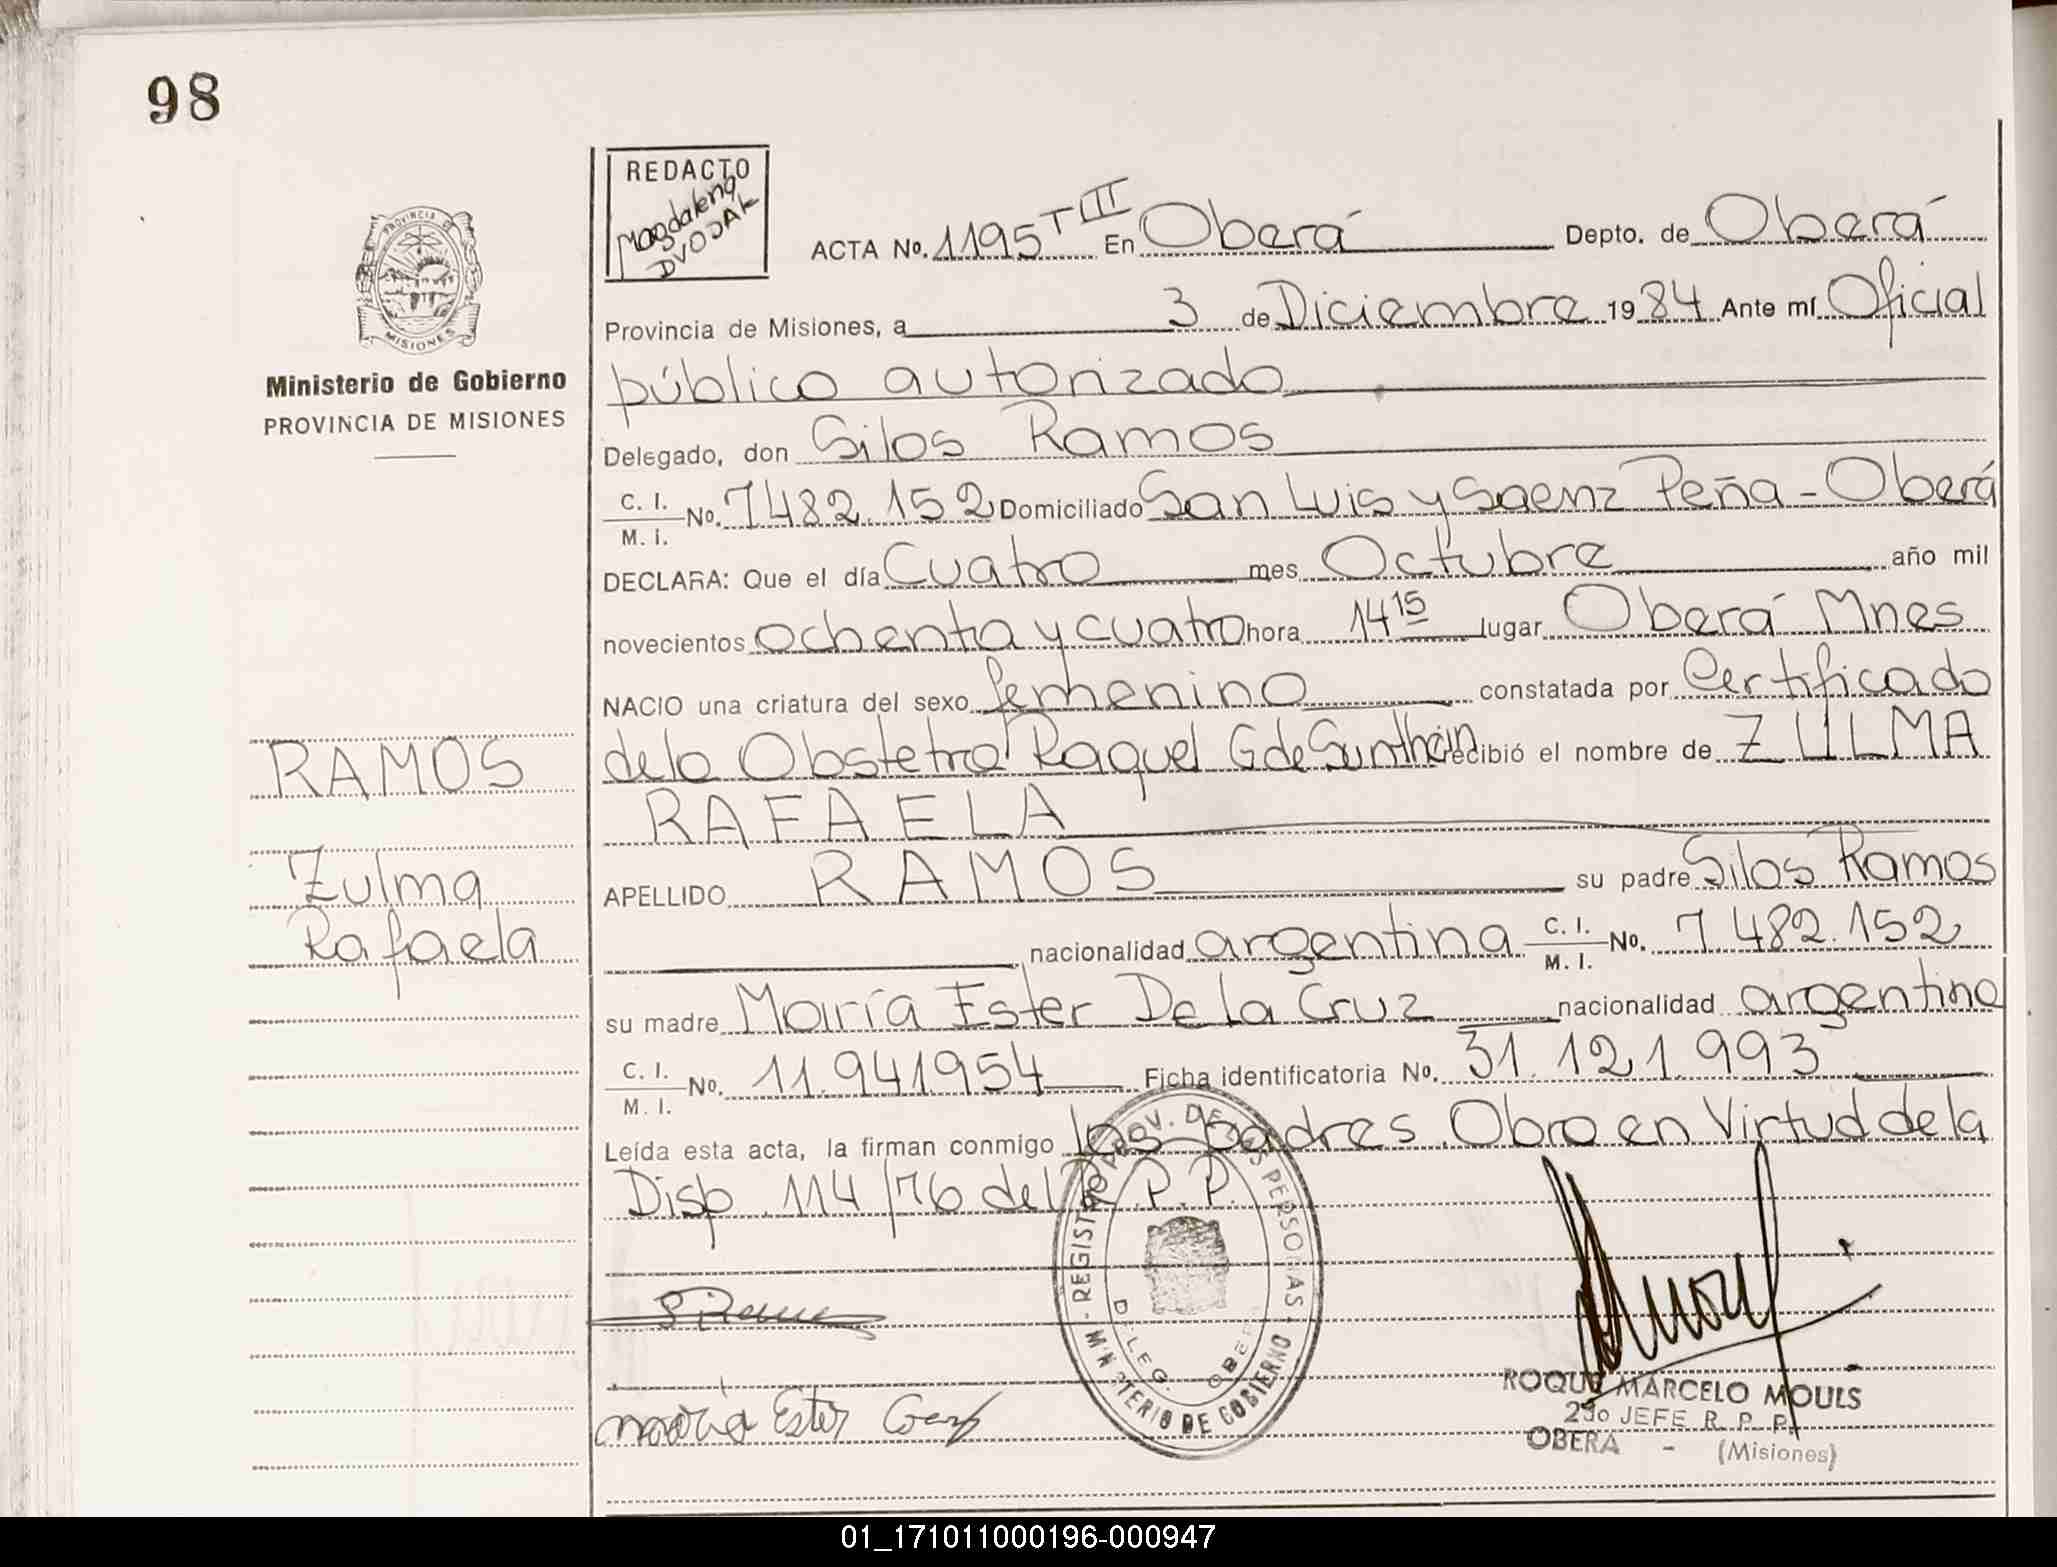 98
REDACTO
Magdalena
DVOJAK
PROVINCIA DE
MISIONES
Ministerio de Gobierno
PROVINCIA DE MISIONES
ACTA No. 1195 T III En Oberá Depto. de Oberá
Provincia de Misiones, a 3 de Diciembre 1984 Ante mí Oficial
público autorizado
Delegado, don Silos Ramos
C. I. / M. I. No. 7482.152 Domiciliado San Luis y Saenz Peña - Oberá
DECLARA: Que el día Cuatro mes Octubre año mil
novecientos ochenta y cuatro hora 14 15 lugar Oberá Mnes
NACIO una criatura del sexo femenino constatada por Certificado
de la Obstetra Raquel G de recibió el nombre de ZULMA
RAFAELA
RAMOS
Zulma
Rafaela
APELLIDO RAMOS su padre Silos Ramos
nacionalidad argentina C. I. / M. I. No. 7.482.152
su madre María Ester De la Cruz nacionalidad argentina
C. I. / M. I. No. 11.941954 Ficha identificatoria No. 31.121.993
Leída esta acta, la firman conmigo los padres. Obro en Virtud de la
Disp. 114/76 del R.P.P.
REGISTRO PROV. DE LAS PERSONAS
MINISTERIO DE GOBIERNO
DELEG. OBERA
S Ramos
María Ester Cruz
ROQUE MARCELO MOULS
2do JEFE R. P. P.
OBERA - (Misiones)
01_171011000196-000947